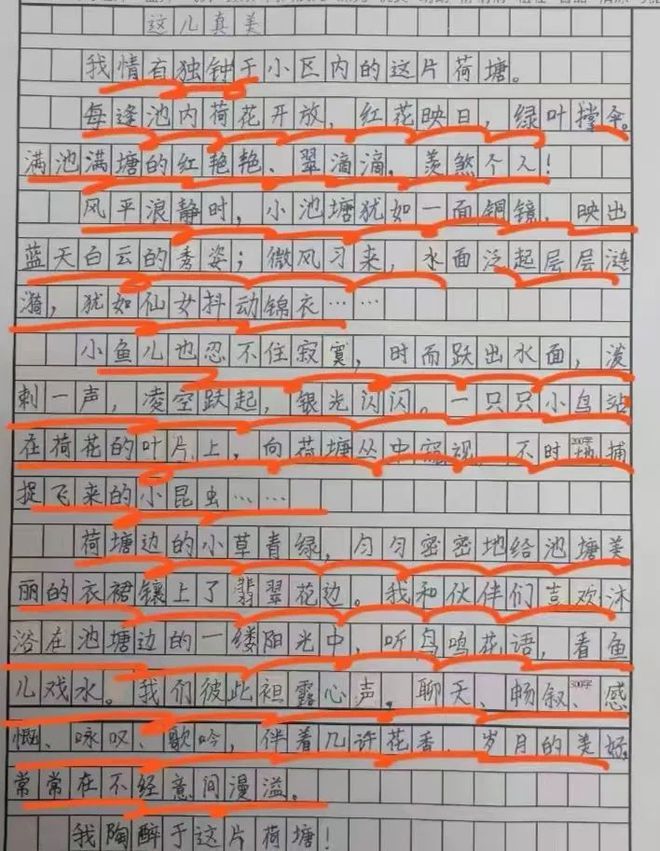 这儿真美
我情有独钟于小区内的这片荷塘。
每逢池内荷花开放，红花映日，绿叶撑伞。
满池满塘的红艳艳、翠滴滴，羡煞个人！
风平浪静时，小池塘犹如一面铜镜，映出
蓝天白云的秀姿；微风习来，水面泛起层层涟
漪，犹如仙女抖动锦衣……
小鱼儿也忍不住寂寞，时而跃出水面，泼
刺一声，凌空跃起，银光闪闪。一只只小鸟站
在荷花的叶片上，向荷塘丛中窥视，不时地捕
捉飞来的小昆虫……
荷塘边的小草青绿，匀匀密密地给池塘美
丽的衣裙镶上了翡翠花边。我和伙伴们喜欢沐
浴在池塘边的一缕阳光中，听鸟鸣花语，看鱼
儿戏水。我们彼此袒露心声，聊天、畅叙、感
慨、咏叹、歌吟，伴着几许花香，岁月的美好，
常常在不经意间漫溢。
我陶醉于这片荷塘！